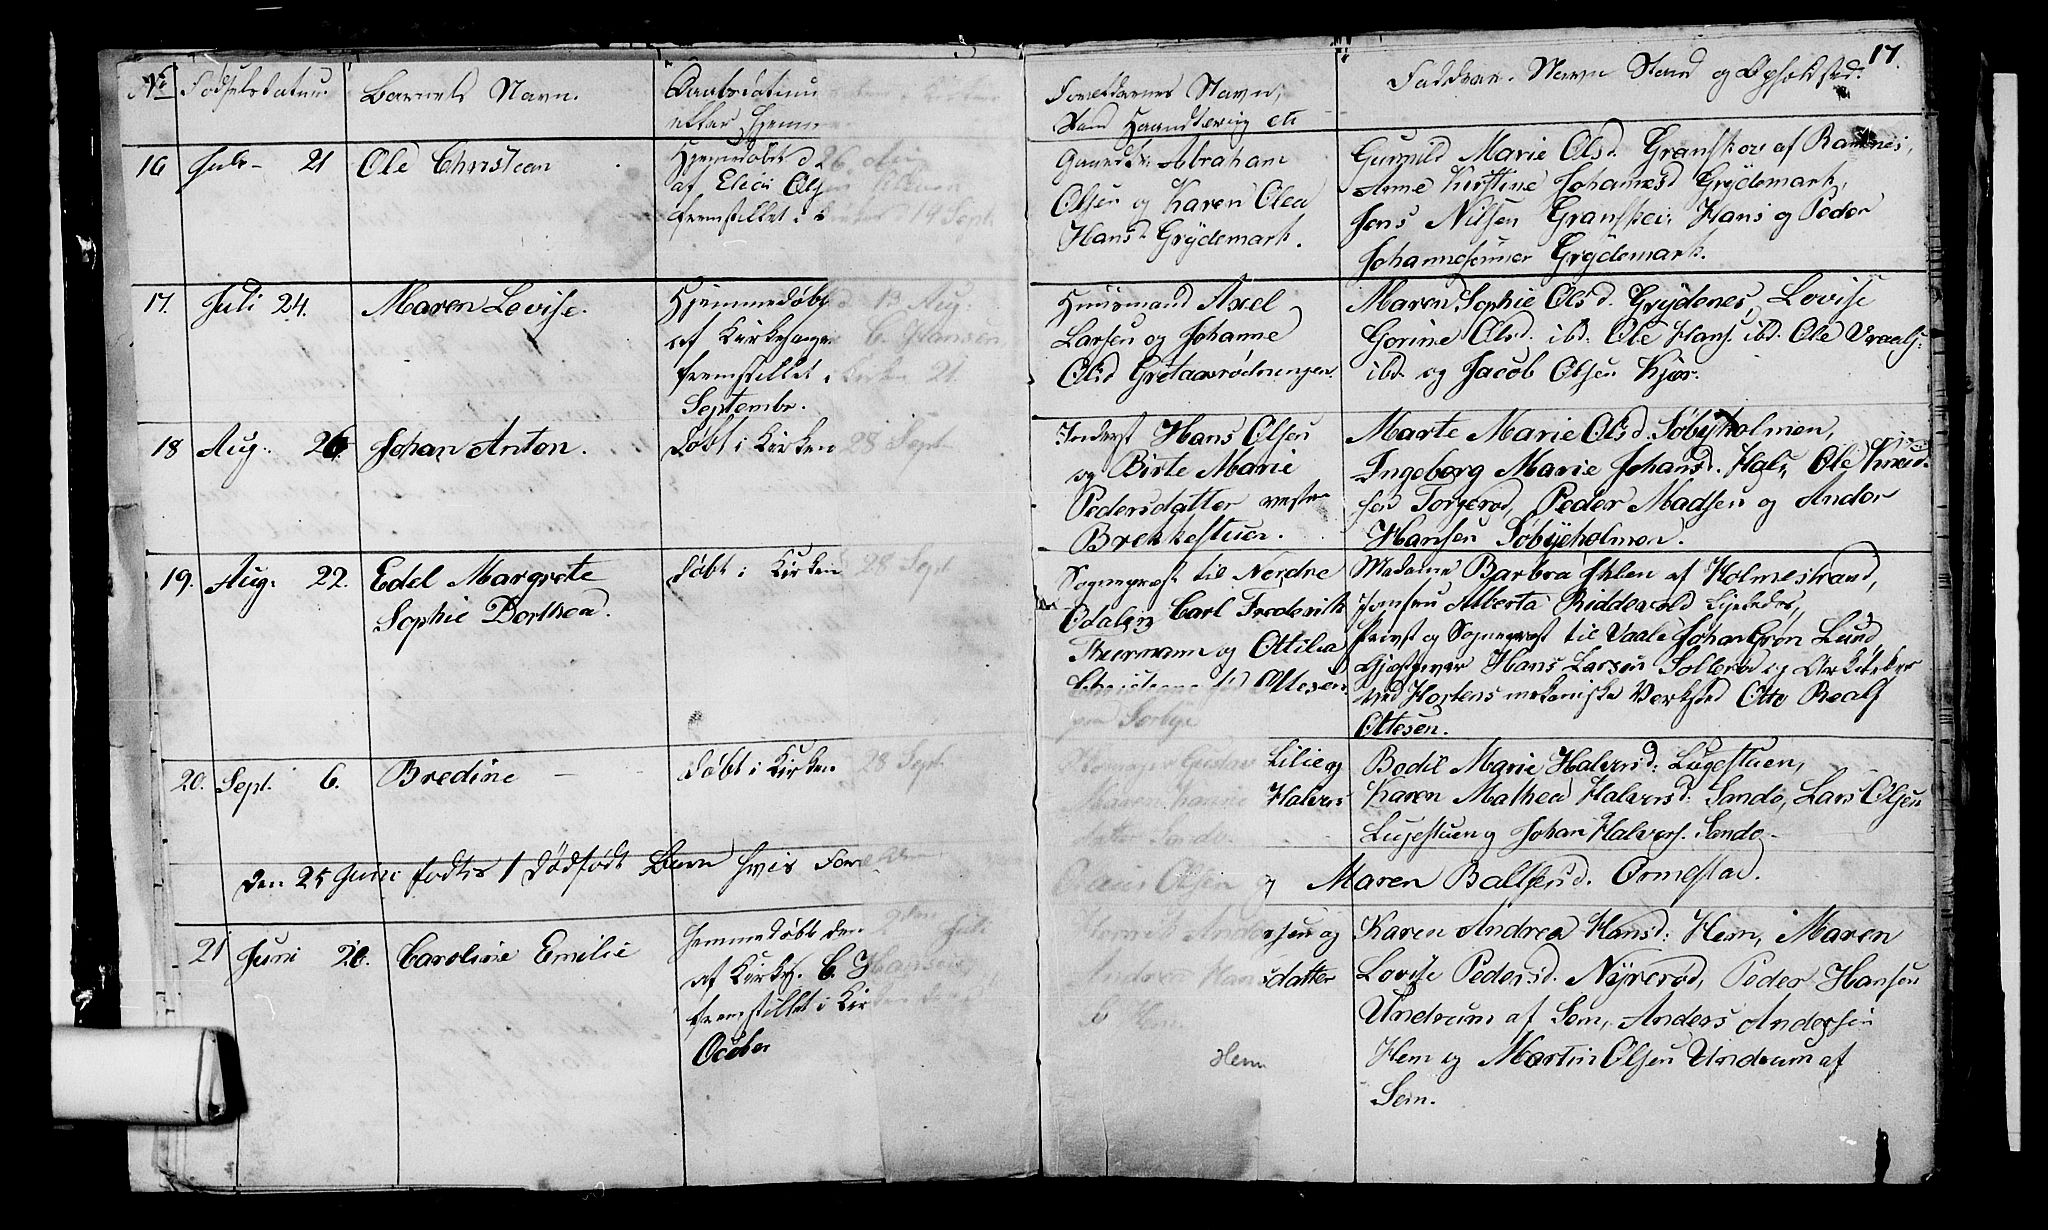 17.
No Fødselsdatum. Barnets Navn. Daabsdatum
efter Hjemme
Forældrenes Navn,
Stand Haandtering etc
Faddernes Navn Stand og Opholdsted.
16 Juli - 21 Ole Christian
Hjemmedøbt d 26 Aug
af Elias Olsen
fremstillet i Kirken d 14 Sept.
Gaardbr. Abraham
Olsen og Karen Olea
Hansd. Grydemark.
Gunnild Marie Olsd. Granskou af Ramnes,
Anne Kirstine Johannesd Grydemark,
Jens Nilsen Granskou, Hans og Peder
Johannesønner Grydemark.
17. Juli 24. Maren Lovise.
Hjemmedøbt d 13 Aug.
af Kirkesanger C. Hansen
fremstillet i Kirken 21.
Septembr.
Huusmand Axel
Larsen og Johanne
Olsd Grétaasrødningen
Maren Sophie Olsd. Grydenes, Lovise
Gorine Olsd. ibd. Ole Hans. ibd. Ole Vraals.
ibd. og Jacob Olsen Kjær.
18 Aug. 26 Johan Anton.
Døbt i Kirken 28 Sept
Inderst Hans Olsen
og Birte Marie
Pedersdatter vestre
Brekkestuen.
Marte Marie Olsd. Søbyholmen,
Ingeborg Marie Johansd. Hals, Ole Knud-
sen Torgerød, Peder Madsen og Andor
Hansen Søbyeholmen.
19. Aug. 22. Edel Margrete
Sophie Dorthea.
Døbt i Kirken 28 Sept
Sognepræst til Nordre
Odalen Carl Frederik
Thurmann og Ottilia
Christiane fød Ottesen
paa Sørbye
Madame Barbra Ihlen af Holmestrand,
Jomfru Alberta Riddervold
Provst og Sognepræst til Vaale Johan Grøn Lund
Gjæstgiver Hans Larsen Sollerød og
ved Hortens mekaniske Verksted Otto Realf
Ottesen.
20. Sept. 6. Bredine
Døbt i Kirken 28 Sept.
Gustav Lilie og
Maren Hanne Halvors
datter Sande.
Bodil Marie Halvorsd: Lugestuen,
Karen Mathea Halvorsd: Sande, Lars Olsen
Lugestuen og Johan Halvors. Sande
Den 25 Juni fødtes 1 Dødfødt Barn hvis Forældre
Olsen og Maren Baltsersd. Ormestad.
21 Juni 20. Caroline Emilie
Hjemmedøbt den 2den Juli
af Kirkes. C. Hansen
fremstillet i Kirken den
Octeber
Henrik Andersen og
Andrea Hansdatter
Hem
Karen Andrea Hansd: Hem, Maren
Lovise Pedersd. Nyrerød, Peder Hansen
Undrum af Sem, Anders Andersen
Hem og Martin Olsen Undrum af
Sem.